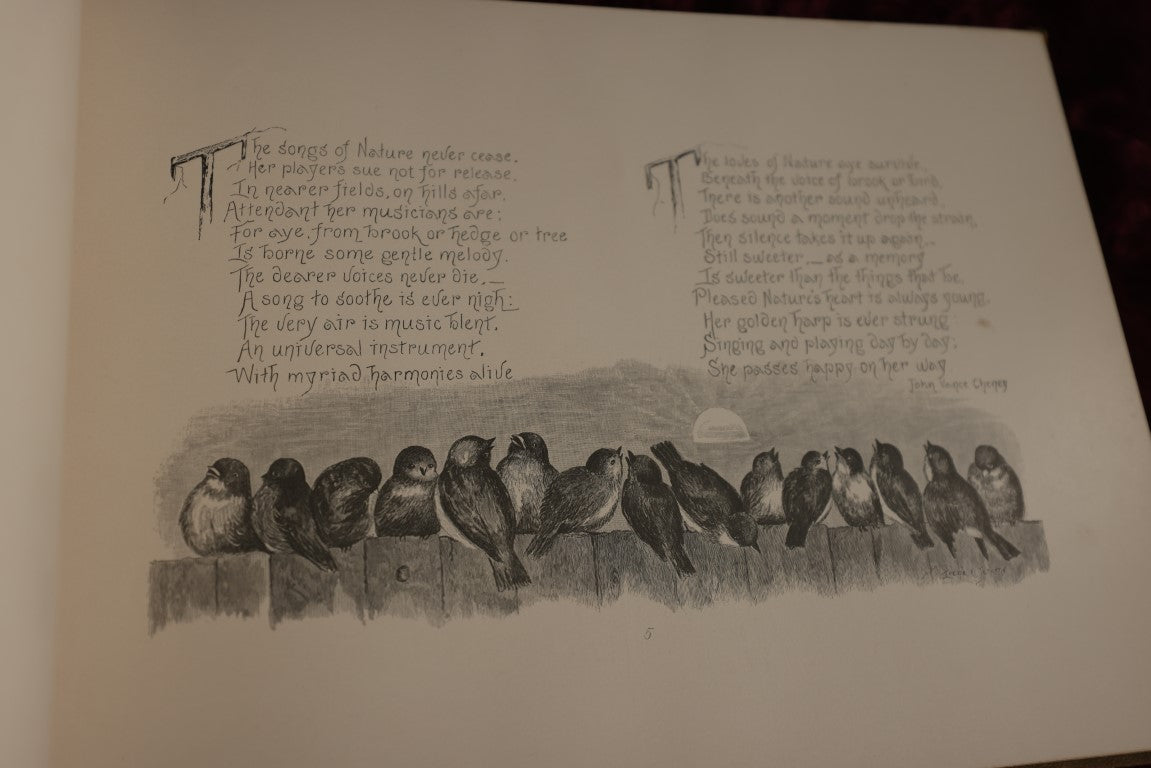 The songs of Nature never cease,
Her players sue not for release.
In nearer fields, on hills afar,
Attendant her musicians are:
For aye, from brook or hedge or tree
Is borne some gentle melody.
The dearer voices never die,—
A song to soothe is ever nigh:
The very air is music blent,
An universal instrument,
With myriad harmonies alive
The loves of Nature aye survive.
Beneath the voice of brook or bird,
There is another sound unheard.
Does sound a moment drop the strain,
Then silence takes it up again,—
Still sweeter,— as a memory
Is sweeter than the things that be.
Pleased Nature's heart is always young,
Her golden harp is ever strung:
Singing and playing day by day;
She passes happy on her way
John Vance Cheney
5